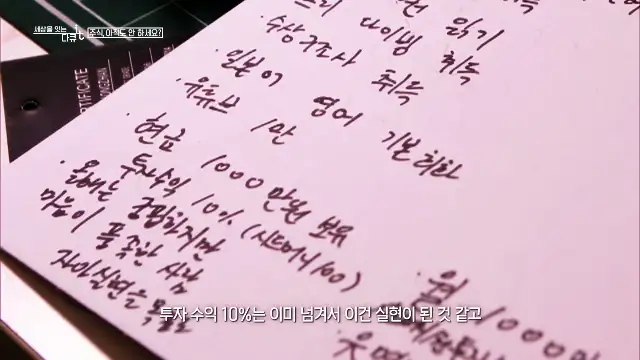 세상을 잇는
다큐it
주식, 아직도 안 하세요?
CERTIFICATE
읽기
다이빙 취득
수상구조사 취득
· 일본어 영어 기본회화
· 유튜브 1만
· 현금 1000만원 보유
· 투자수익 10% (시드머니100)
올해는 궁핍하지만
마음이 풍족한 사람
자아실현을
월 1000만
투자 수익 10%는 이미 넘겨서 이건 실현이 된 것 같고